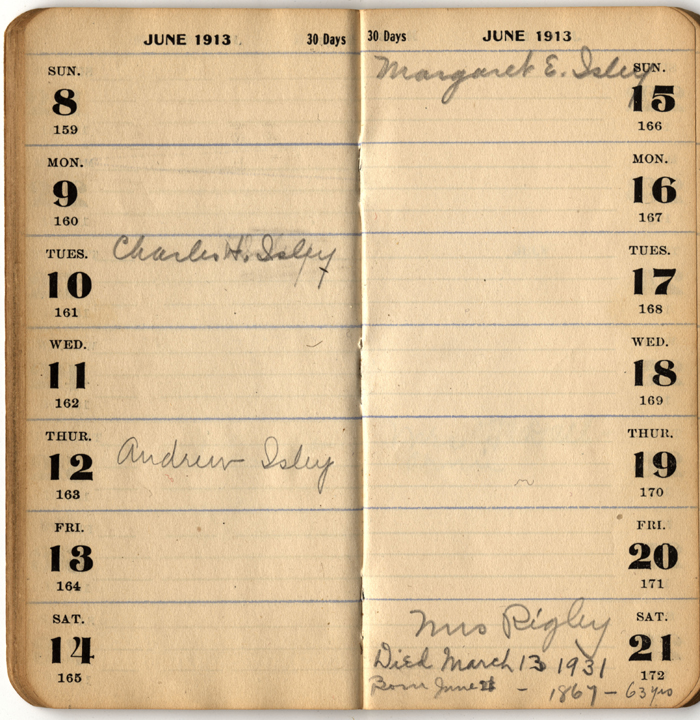 JUNE 1913 30 Days
SUN.
8
159
MON.
9
160
TUES.
10
161
Charles H. Isley
WED.
11
162
THUR.
12
163
Andrew Isley
FRI.
13
164
SAT.
14
165
30 Days JUNE 1913
Margaret E. Isley
SUN.
15
166
MON.
16
167
TUES.
17
168
WED.
18
169
THUR.
19
170
FRI.
20
171
SAT.
21
172
Mrs Rigley
Died March 13 1931
Born June - 1867 - 63 yrs